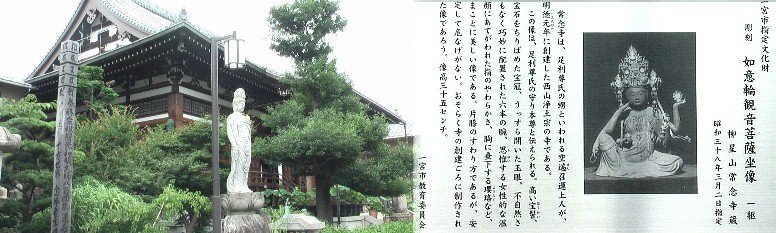 一宮市指定文化財
彫刻　如意輪観音菩薩坐像　一躯
柳星山常念寺蔵
昭和三十八年三月二日指定
常念寺は、足利尊氏の甥といわれる空遠召運上人が、
明徳元年に創建した西山浄土宗の寺である。
この像は、足利尊氏の守り本尊と伝えられる。高い宝髻、
宝石をちりばめた宝冠、うっすら開いた玉眼、不自然さ
もなく巧妙に配置された六本の腕、思惟する女性的な温
顔にあてがわれた指のやわらかさ、胸に垂下する瓔珞など、
まことに美しい像である。片膝のすわり方であるが、安
定して危なげがない。おそらく寺の創建ごろに制作され
た像であろう。像高三十五センチ。
一宮市教育委員会